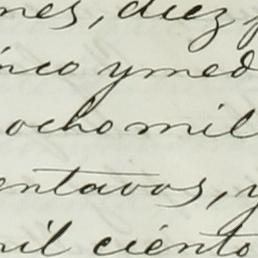 nes, diez
nco y med
ocho mil
entavos, y
mil ciento